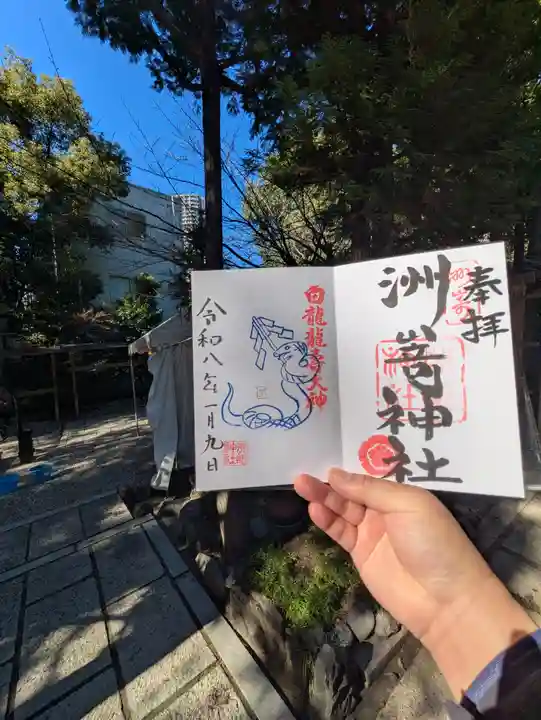 奉拝
洲嵜神社
白龍龍壽大神
令和八年一月九日